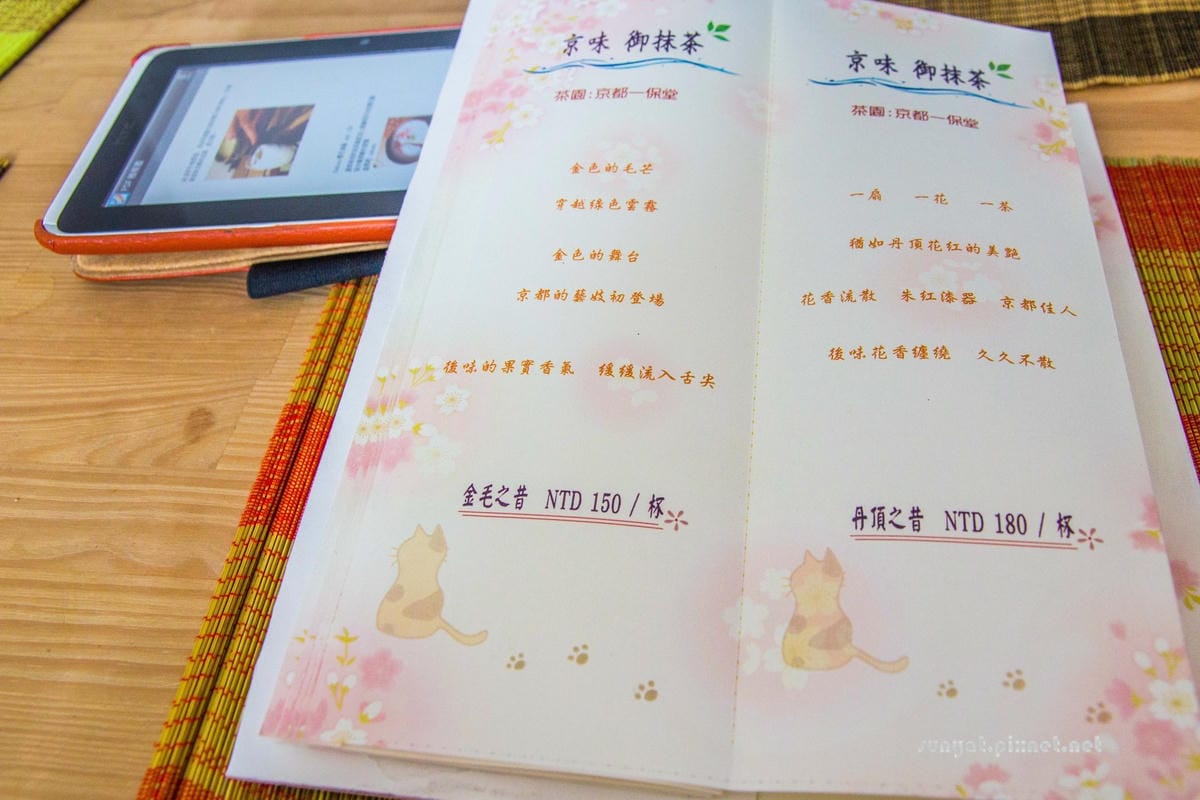 京味 御抹茶
茶園:京都一保堂
金色的毛芒
穿越綠色雲霧
金色的舞台
京都的藝妓初登場
後味的果實香氣 緩緩流入舌尖
金毛之昔 NTD 150 / 杯
京味 御抹茶
茶園:京都一保堂
一扇 一花 一茶
猶如丹頂花红的美艷
花香流散 朱红漆器 京都佳人
後味花香纏繞 久久不散
丹頂之昔 NTD 180 / 杯
sunyat.pixnet.net